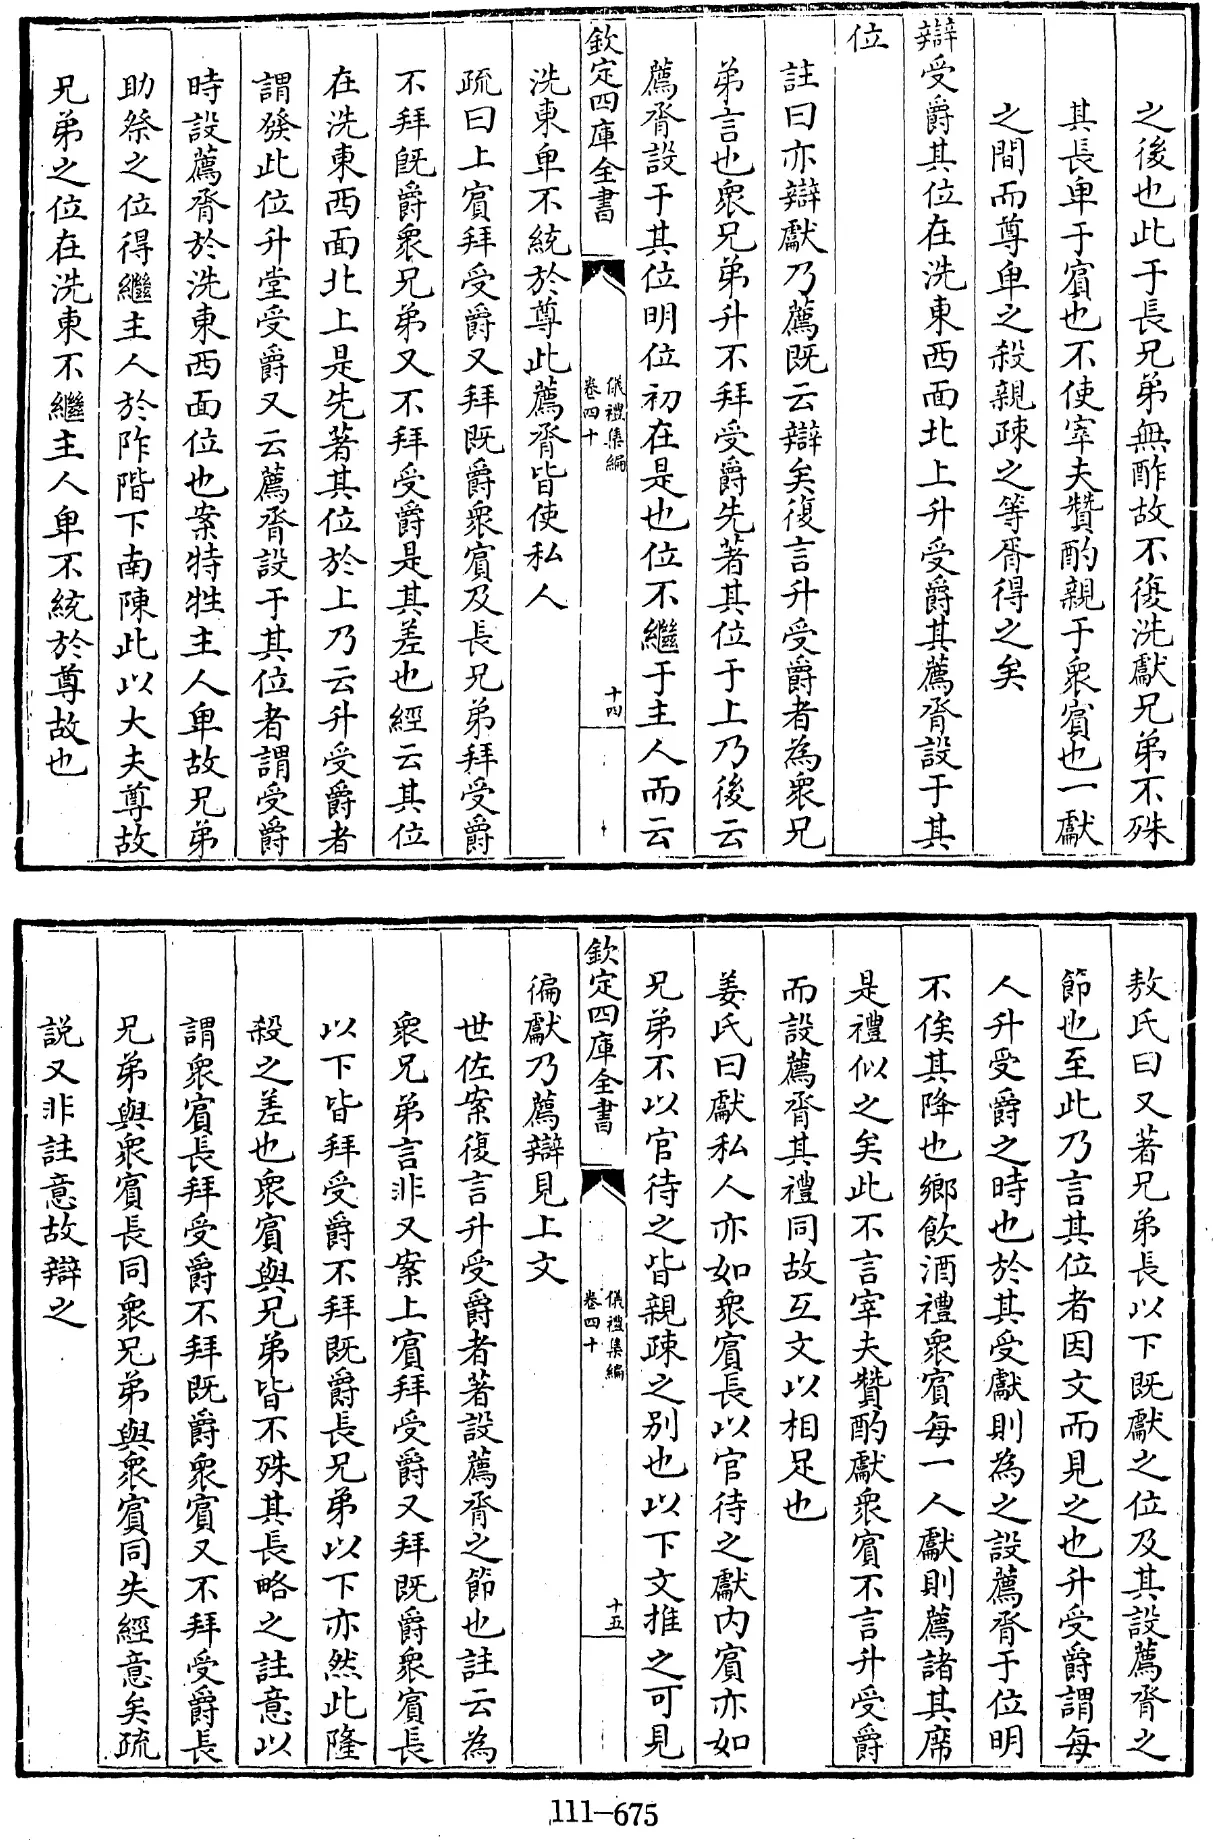 之後也此于長兄弟無酢故不復洗獻兄弟不殊
其長卑于賓也不使宰夫贊酌親于衆賓也一獻
之間而尊卑之殺親疎之等胥得之矣
辯受爵其位在洗東西面北上升受爵其薦脀設于其
位
註曰亦辯獻乃薦既云辯矣復言升受爵者為衆兄
弟言也衆兄弟升不拜受爵先著其位于上乃後云
薦脀設于其位明位初在是也位不繼于主人而云
欽定四庫全書
儀禮集編
卷四十
十四
洗東卑不統於尊此薦脀皆使私人
疏曰上賓拜受爵又拜既爵衆賓及長兄弟拜受爵
不拜既爵衆兄弟又不拜受爵是其差也經云其位
在洗東西面北上是先著其位於上乃云升受爵者
謂發此位升堂受爵又云薦脀設于其位者謂受爵
時設薦脀於洗東西面位也案特牲主人卑故兄弟
助祭之位得繼主人於阼階下南陳此以大夫尊故
兄弟之位在洗東不繼主人卑不統於尊故也
敖氏曰又著兄弟長以下既獻之位及其設薦脀之
節也至此乃言其位者因文而見之也升受爵謂每
人升受爵之時也於其受獻則為之設薦脀于位明
不俟其降也鄉飲酒禮衆賓每一人獻則薦諸其席
是禮似之矣此不言宰夫贊酌獻衆賓不言升受爵
而設薦脀其禮同故互文以相足也
姜氏曰獻私人亦如衆賓長以官待之獻内賓亦如
兄弟不以官待之皆親疎之别也以下文推之可見
欽定四庫全書
儀禮集編
卷四十
十五
徧獻乃薦辯見上文
世佐案復言升受爵者著設薦脀之節也註云為
衆兄弟言非又案上賓拜受爵又拜既爵衆賓長
以下皆拜受爵不拜既爵長兄弟以下亦然此隆
殺之差也衆賓與兄弟皆不殊其長略之註意以
謂衆賓長拜受爵不拜既爵衆賓又不拜受爵長
兄弟與衆賓長同衆兄弟與衆賓同失經意矣疏
説又非註意故辯之
111-675